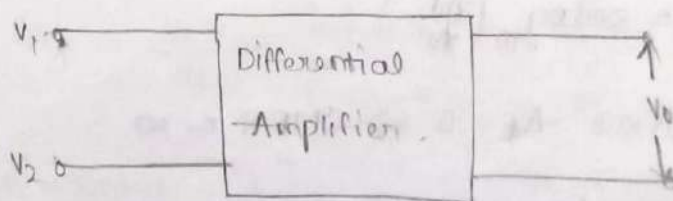 V1
Differential
Amplifier.
V2
V0